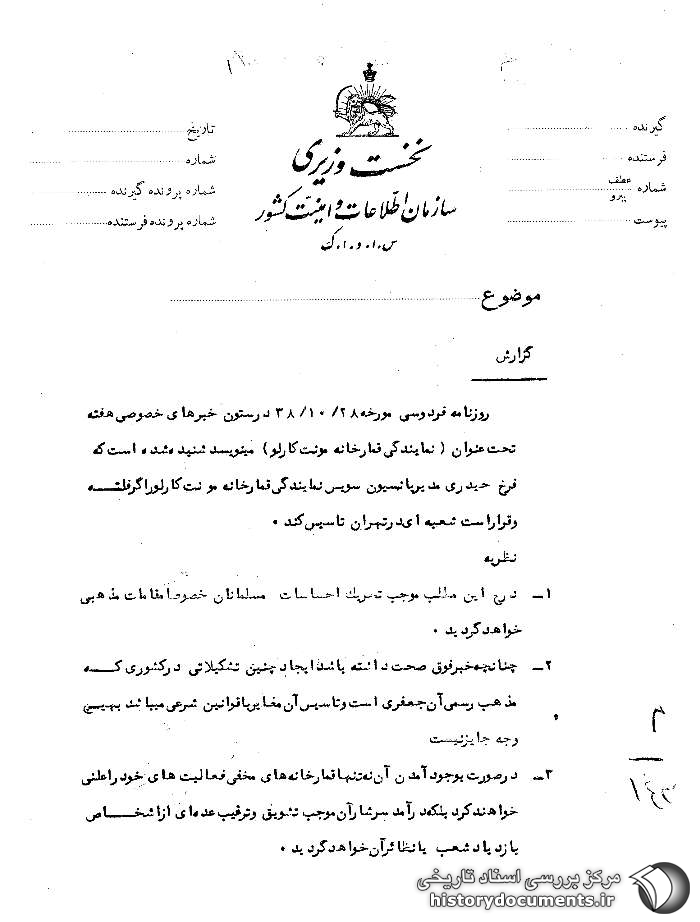 گیرنده
فرستنده
شماره عطف پیرو
پیوست
نخست وزیری
سازمان اطلاعات و امنیت کشور
س.ا.و.ا.ک
تاریخ
شماره
شماره پرونده گیرنده
شماره پرونده فرستنده
موضوع
گزارش
روزنامه فردوسی مورخه ۲۸/ ۱۰/ ۳۸ درستون خبرهای خصوصی هفته
تحت عنوان ( نمایندگی قمارخانه مونت کارلو) مینویسد شنیده شده است که
فرخ حیدری مدیرپانسیون سویس نمایندگی قمارخانه مونت کارلوراگرفتـه
وقراراست شعبه ای درتهران تاسیس کند ۰
نظریه
۱ـ درج این مطلب موجب تحریک احساسات مسلمانان خصوصاً مقامات مذهبی
خواهد گردید ۰
۲ـ چنانچه خبرفوق صحت داشته باشد ایجاد چنین تشکیلاتی درکشوری کـه
مذهب رسمی آن جعفری است وتاسیس آن مغایر با قوانین شرعی میباشد بهیـچ
وجه جایزنیست
۳ـ درصورت بوجود آمدن آن نه تنها قمارخانه های مخفی فعالیت های خود راعلنی
خواهند کرد بلکه درآمد سرشارآن موجب تشویق وترقیب عده ای ازاشخـاص
بازدیاد شعب یا نظائرآن خواهد گردید ۰
مرکز بررسی اسناد تاریخی
historydocuments.ir